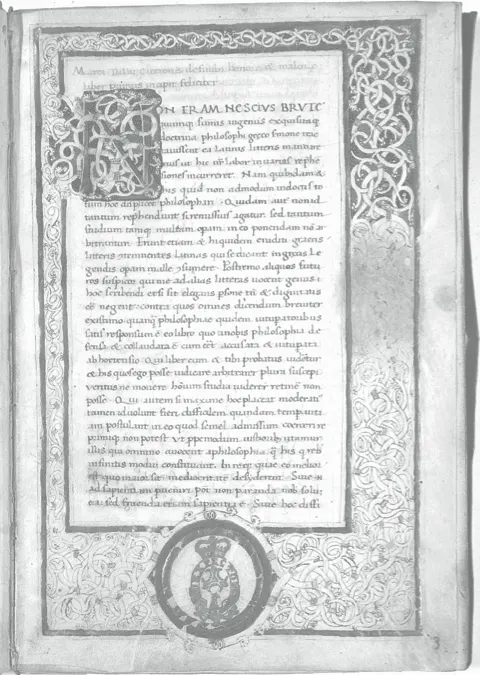 Marci Tullii Ciceronis de finibus bonorum & malorum
liber primus incipit feliciter
NON ERAM NESCIVS BRVTE
quumq; sūmis ingeniis exquisitaq;
doctrina philosophi greco sermone
tractavissent ea Latinis litteris mandare
mus ut hic nr̄ labor in varias reprhe
siones incurreret. Nam quibusdam &
his quid non admodum indoctis to
tum hoc displicet philosophari. Quidam aut non id
tantum reprhendunt si remissius agatur. sed tantum
studium tamq; multam operam in eo ponendam nō ar
bitrantur. Erunt etiam & hi quidem eruditi graecis
litteris contemnentes Latinas qui se dicant in grecis le
gendis operam malle consumere. Postremo aliquos futu
ros suspicor qui me ad alias litteras vocent genus
hoc scribendi etsi sit elegans persone tn̄ & dignitatis
eē negent. contra quos omnis dicendum breviter
existimo. quamq̄ philosophiae quidem vituperatoribus
satis responsum ē eo libro quo a nobis philosophia de
fensa & collaudata ē cum eēt accusata & vituperata
ab hortensio. Qui liber cum & tibi probatus videretur
& his quos ego posse iudicare arbitrarer plura suscepi
veritus ne movere hominum studia viderer retinere non
posse. Qui autem si maxime hoc placeat moderatius
tamen id volunt fieri. difficilem quandam temperantiam
postulant in eo quod semel admissum coerceri re
primiq; non potest. Ut propemodum iustioribus utamur
illis qui omnino avocent a philosophia q̄ his q rebus
infinitis modum constituant. In req; eo meliore
quo maior sit mediocritatem desiderent. Sive
ad sapientiam perveniri potest non paranda nobis solum
ea: sed fruenda etiam sapientia ē. Sive hoc diffi
3